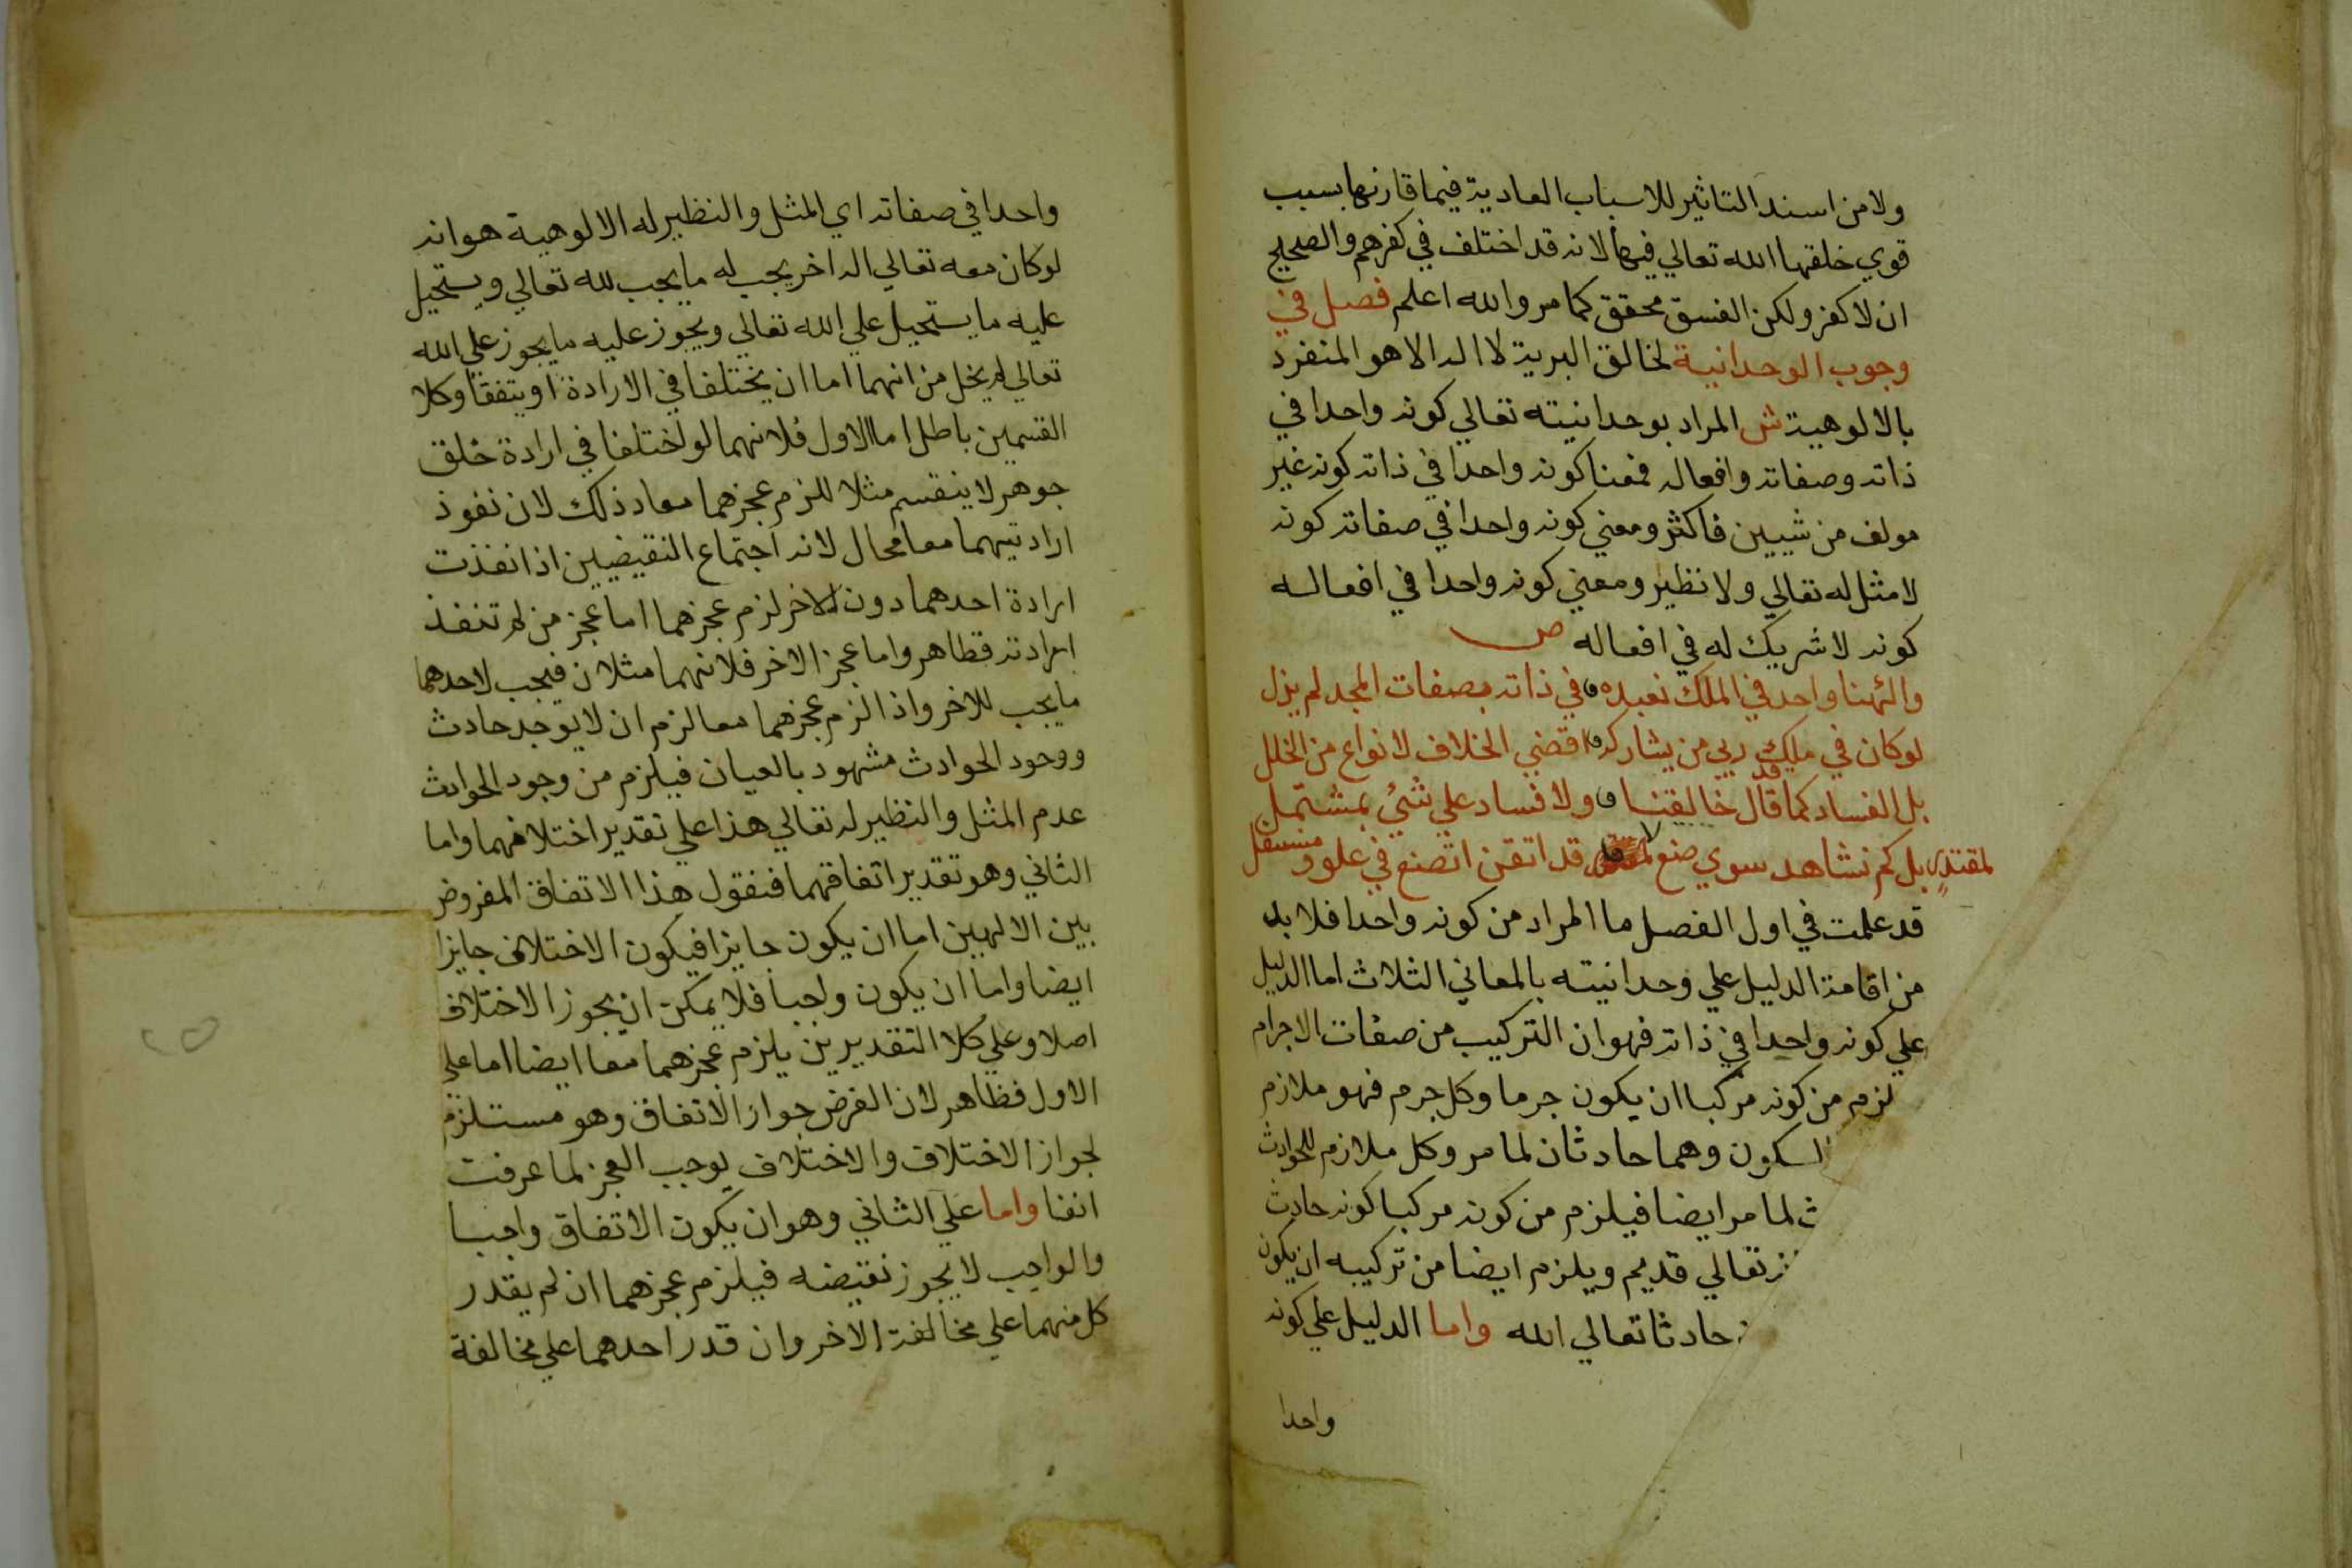 ولا من اسند التاثير للاسباب العادية فيما قارنها بسبب
قوي خلقها الله تعالي فيها لانه قد اختلف في كفرهم والصحيح
ان لا كفر ولكن الفسق محقق كما مر والله اعلم فصل في
وجوب الوحدانية لخالق البرية لا اله الا هو المنفرد
بالالوهية ش المراد بوحدانيته تعالي كونه واحدا في
ذاته وصفاته وافعاله فمعنا كونه واحدا في ذاته كونه غير
مولف من شيين فاكثر ومعني كونه واحدا في صفاته كونه
لا مثل له تعالي ولا نظير ومعني كونه واحدا في افعاله
كونه لا شريك له في افعاله ص
والهنا واحد في الملك نعبده في ذاته بصفات المجد لم يزل
لو كان في ملك ربي من يشاركه اقضي الخلاف لانواع من الخلل
بل الفساد كما قد قال خالقنا ولا فساد علي شئ بمشتمل
بل كم نشاهد سوي صنع لمقتدر قد اتقن الصنع في علو ومستفل
قد علمت في اول الفصل ما المراد من كونه واحدا فلا بد
من اقامة الدليل علي وحدانيته بالمعاني الثلاث اما الدليل
علي كونه واحدا في ذاته فهو ان التركيب من صفات الاجرام
لزم من كونه مركبا ان يكون جرما وكل جرم فهو ملازم
السكون وهما حادثان لما مر وكل ملازم للحوادث
ث لما مر ايضا فيلزم من كونه مركبا كونه حادث
تعالي قديم ويلزم ايضا من تركيبه ان يكون
حادثا تعالي الله واما الدليل علي كونه
واحدا
واحدا في صفاته اي المثل والنظير له الالوهية هو انه
لو كان معه تعالي اله اخر يجب له ما يجب لله تعالي ويستحيل
عليه ما يستحيل علي الله تعالي ويجوز عليه ما يجوز علي الله
تعالي لم يخل من انهما اما ان يختلفا في الارادة او يتفقا وكلا
القسمين باطل اما الاول فلانهما لو اختلفا في ارادة خلق
جوهر لا ينقسم مثلا للزم عجزهما معا ذلك لان نفوذ
ارادتيهما معا محال لانه اجتماع النقيضين اذا نفذت
ارادة احدهما دون الاخر لزم عجزهما اما عجز من لم تنفذ
ارادته فظاهر واما عجز الاخر فلانهما مثلان فيجب لاحدهما
ما يجب للاخر واذا لزم عجزهما معا لزم ان لا يوجد حادث
ووجود الحوادث مشهود بالعيان فيلزم من وجود الحوادث
عدم المثل والنظير له تعالي هذا علي تقدير اختلافهما واما
الثاني وهو تقدير اتفاقهما فنقول هذا الاتفاق المفروض
بين الالهين اما ان يكون جايزا فيكون الاختلاف جايزا
ايضا واما ان يكون واجبا فلا يمكن ان يجوز الاختلاف
اصلا وعلي كلا التقديرين يلزم عجزهما معا ايضا اما علي
الاول فظاهر لان الفرض جواز الاتفاق وهو مستلزم
لجواز الاختلاف والاختلاف يوجب العجز لما عرفت
انفا واما علي الثاني وهو ان يكون الاتفاق واجبا
والواجب لا يجوز نقيضه فيلزم عجزهما ان لم يقدر
كل منهما علي مخالفة الاخر وان قدر احدهما علي مخالفة